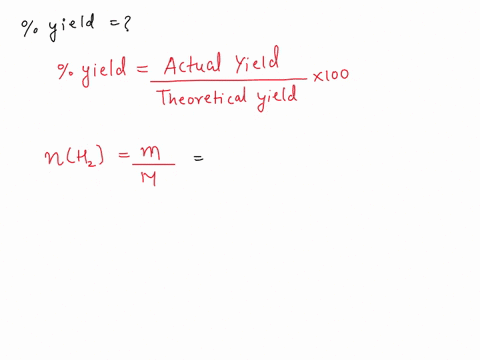 % yield = ?
% yield = Actual Yield / Theoretical yield ×100
n(H₂) = m / M =